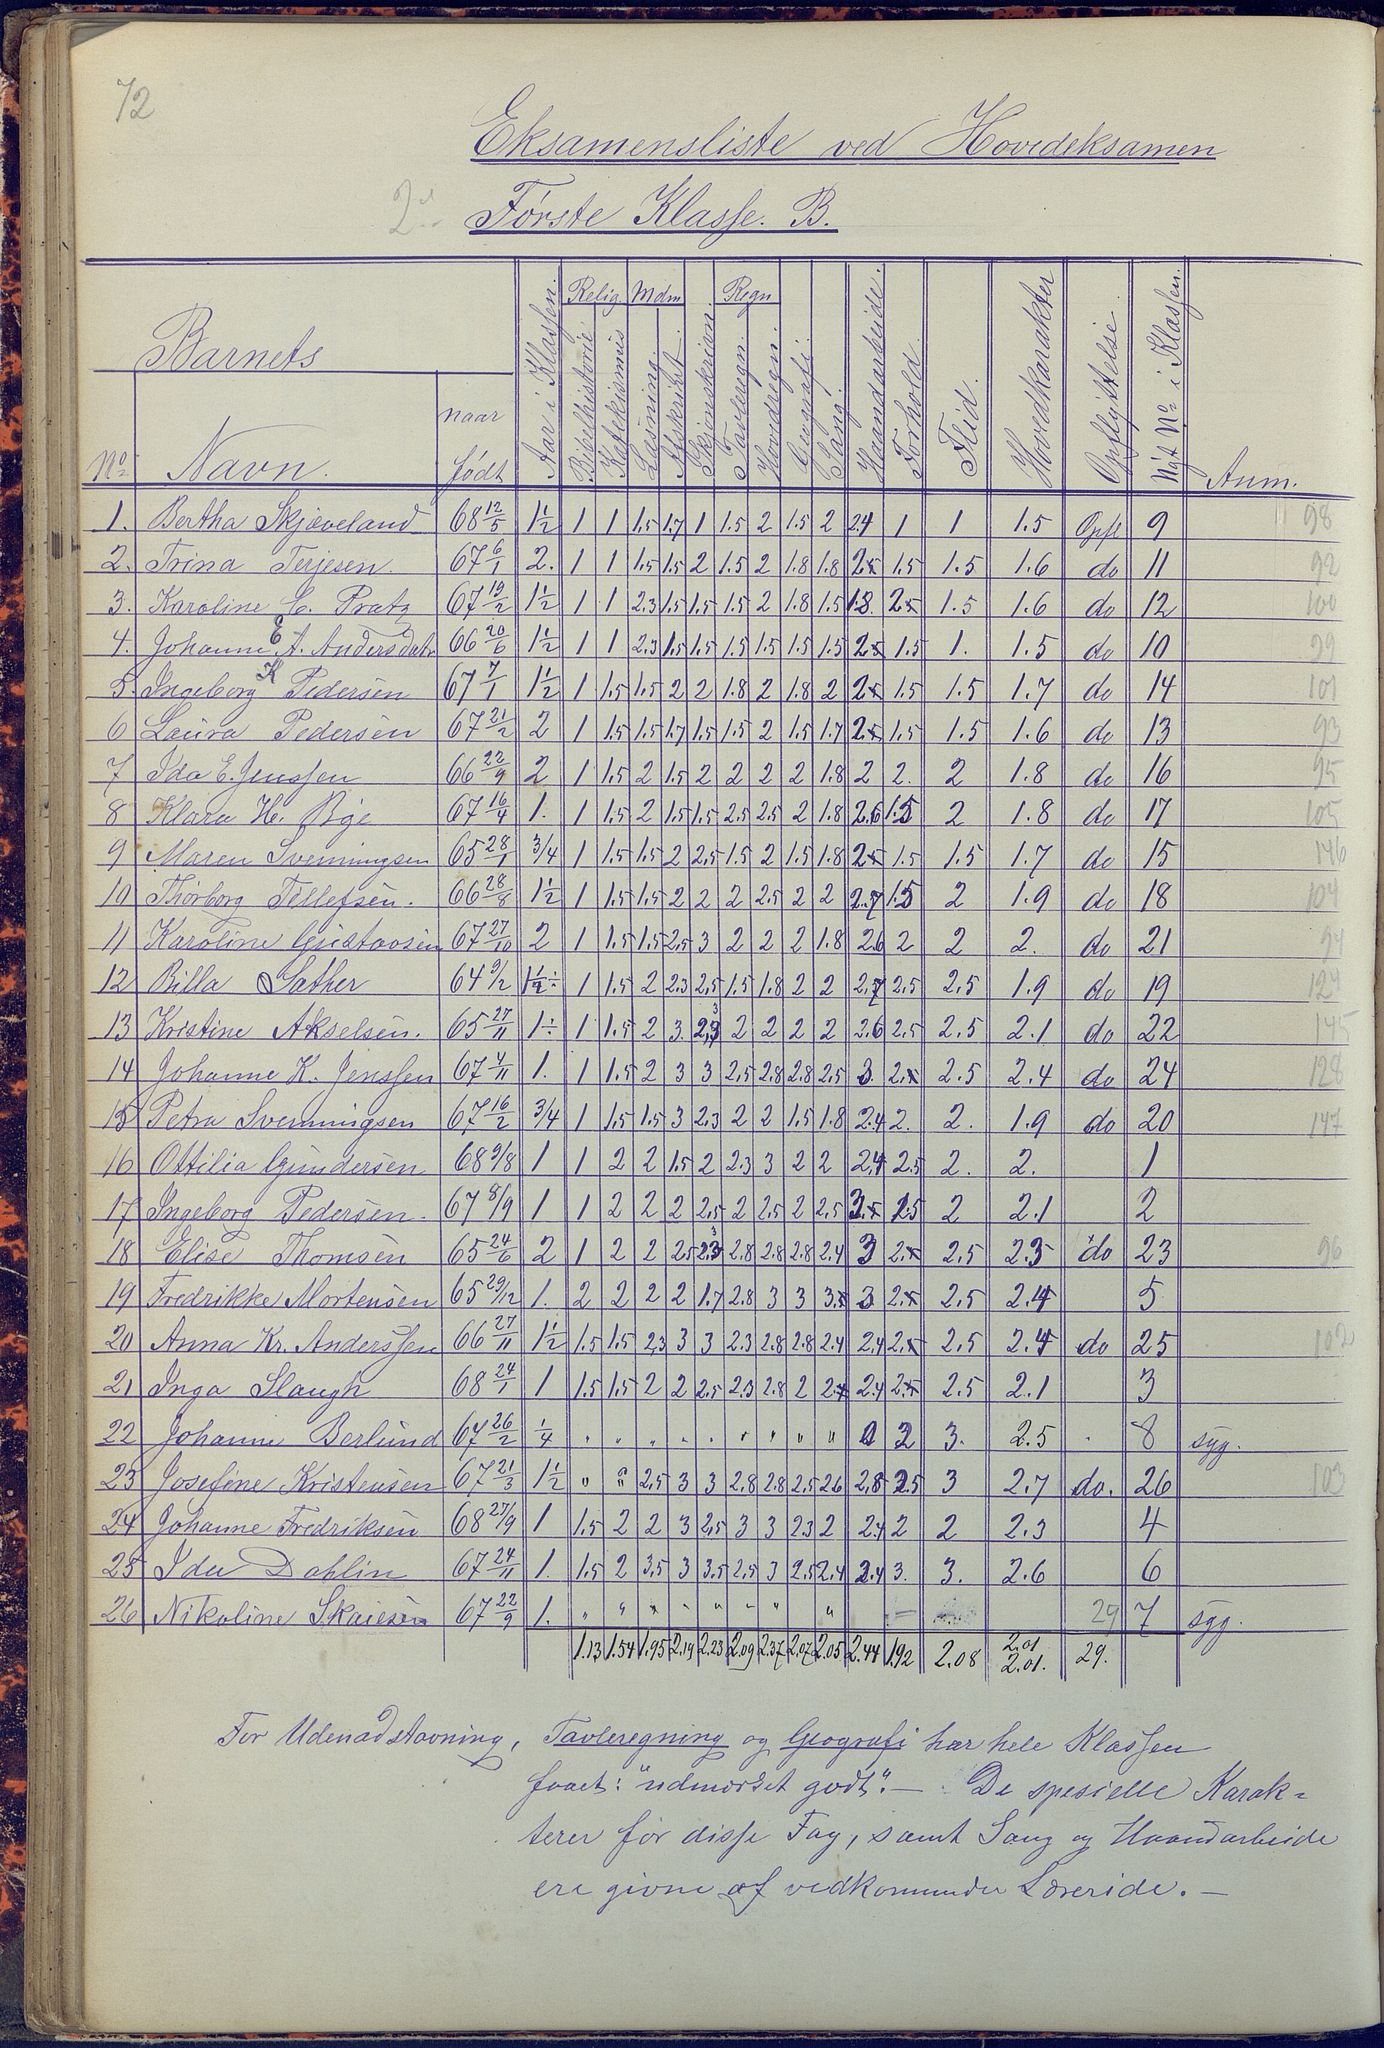 72
Eksamensliste ved Hovedeksamen
2
Første Klasse. B.
Barnets
Relig Mdm Regn
No Navn. naar født Aar i Klassen. Bibelhistorie Katekismus Læsning. Afskrivt. Skjønskrivn. Tavleregn. Hovedregn. Geografi. Sang. Haandarbeide. Forhold. Flid. Hovedkarakter Opflyttelse. Nyt No i Klassen. Anm.
1. Bertha Skjæveland 68 12/5 1 1/2 1 1 1.5 1.7 1 1.5 2 1.5 2 2.4 1 1 1.5 Opfl 9 98
2. Trina Terjesen. 67 6/1 2. 1 1 1.5 1.5 2 1.5 2 1.8 1.8 2.5 1.5 1.5 1.6 do 11 92
3. Karoline C. Pratz 67 19/2 1 1/2 1 1 2.3 1.5 1.5 1.5 2 1.8 1.5 1.8. 2.5 1.5 1.6 do 12 100
4. Johanne E A. Andersdatr 66 20/6 1 1/2 1 1 2.3 1.5 1.5 1.5 1.5 1.5 1.5 2.5 1.5 1. 1.5 do 10 99
5. Ingeborg K Pedersen 67 7/1 1 1/2 1 1.5 1.5 2 2 1.8 2 1.8 2 2.5 1.5 1.5 1.7 do 14 101
6 Laura Pedersen 67 21/2 2 1 1.5 1.5 1.7 1.5 1.5 2 1.5 1.7 2.5 1.5 1.5 1.6 do 13 93
7 Ida E. Jenssen 66 22/9 2 1 1.5 2 1.5 2 2 2 2 1.8 2 2. 2 1.8 do 16 95
8 Klara H. Bie 67 16/4 1. 1 1.5 2 1.5 1.5 2.5 2.5 2 1.8 2.6 1.5 2 1.8 do 17 105
9 Maren Svenningsen 65 28/1 3/4 1 1.5 1.5 2 2.5 1.5 2 1.5 1.8 2.5 1.5 1.5 1.7 do 15 146
10 Thorborg Tellefsen. 66 28/8 1 1/2 1 1.5 1.5 2 2 2 2.5 2 2 2.7 1.5 2 1.9 do 18 104
11 Karoline Gustavsen 67 27/10 2 1 1.5 1.5 2.5 3 2 2 2 1.8 2.6 2 2 2. do 21 94
12 Billa Sather 64 9/2 1 1/2 ÷ 1 1.5 2 2.3 2.5 1.5 1.8 2 2 2.7 2.5 2.5 1.9 do 19 127
13 Kristine Akselsen. 65 27/11 1 ÷ 1 1.5 2 3. 2.3 2 2 2 2 2.6 2.5 2.5 2.1 do 22 145
14 Johanne K. Jenssen 67 4/11 1. 1 1.5 2 3 3 2.5 2.8 2.8 2.5 3. 2.5 2.5 2.4 do 24 128
15 Petra Svenningsen 67 16/2 3/4 1 1.5 1.5 3 2.3 2 2 1.5 1.8 2.4 2. 2. 1.9 do 20 147
16 Ottilia Gundersen 68 9/8 1 1 2 2 1.5 2 2.3 3 2 2 2.4 2.5 2. 2. 1
17 Ingeborg Pedersen. 67 8/9 1 1 2 2 2 2.5 2 2.5 2 2.5 3.5 2.5 2 2.1 2
18 Elise Thomsen 65 24/6 2 1 2 2 2.5 2.3 2.8 2.8 2.8 2.4 3 2.5 2.5 2.3 do 23 96
19 Fredrikke Mortensen 65 29/12 1. 2 2 2 2 1.7 2.8 3 3 3.5 3 2.5 2.5 2.4 5
20 Anna Kr. Anderssen 66 27/11 1 1/2 1.5 1.5 2.3 3 3 2.3 2.8 2.8 2.4 2.4 2.5 2.5 2.4 do 25 102
21 Inga Slaugh 68 24/1 1 1.5 1.5 2 2 2.5 2.3 2.8 2 2.4 2.4 2.5 2.5 2.1 3
22 Johanne Berlund 67 26/2 1/4 " " " " " " " " " 2 3. 2.5 8 syg.
23 Josefine Kristensen 67 21/3 1 1/2 " " 2.5 3 3 2.8 2.8 2.5 2.6 2.8 2.5 3 2.7 do. 26 103
24 Johanne Fredriksen 68 27/9 1 1.5 2 2 3 2.5 3 3 2.3 2 2.4 2 2 2.3 4
25 Ida Dahlin 67 24/11 1. 1.5 2 3.5 3 3.5 2.5 3 2.5 2.4 2.4 3. 3. 2.6 6
26 Nikoline Skaiesen 67 22/9 1. " " " " " " " " 29 7 syg.
1.13 1.54 1.95 2.19 2.23 2.09 2.37 2.07 2.05 2.44 1.92 2.08 2.01 2.01. 29.
For Udenadstavning, Tavleregning og Geografi har hele Klassen
faaet: "udmærket godt". — De spesielle Karak=
terer for disse Fag, samt Sang og Haandarbeide
ere givne af vedkommende Lærerinde. —